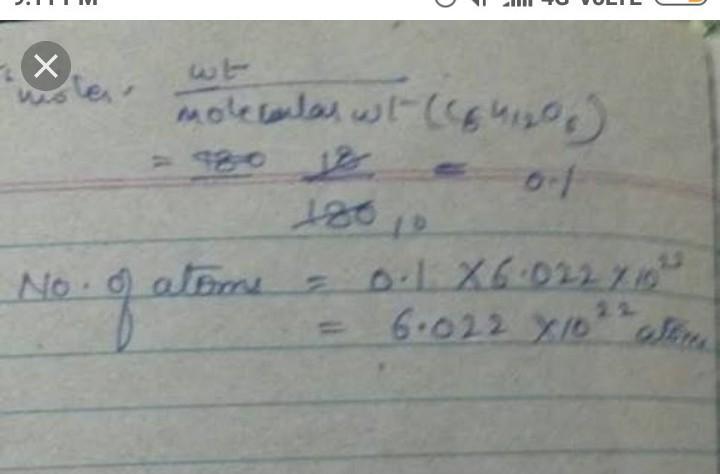 moles = wt
molecular wt (C6H12O6)
= 18 = 0.1
180 10
No. of atoms = 0.1 X 6.022 X 10^23
= 6.022 X 10^22 atoms